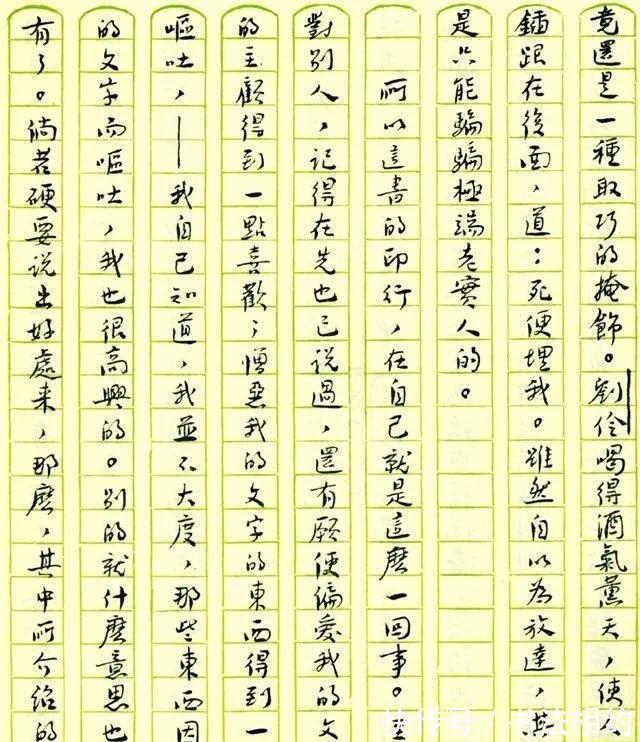 竟還是一種取巧的掩飾。劉伶喝得酒氣薰天,使人
鍤跟在後面,道:死便埋我。雖然自以為放達,其
是只能騙騙極端老實人的。
所以這書的印行,在自己就是這麼一回事。
對別人,記得在先也已說過,還有願使偏愛我的文
的主顧得到一點喜歡;憎惡我的文字的東西得到一
嘔吐,——我自己知道,我並不大度,那些東西因
的文字而嘔吐,我也很高興的。別的就什麼意思也
有了。倘若硬要說出好處來,那麼,其中所介紹的
快传号/书法相约